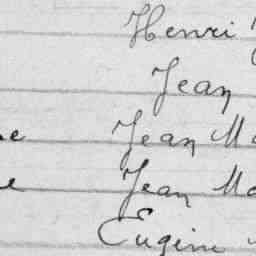 Henri
Jean
Jean Ma
Jean Ma
Eugène